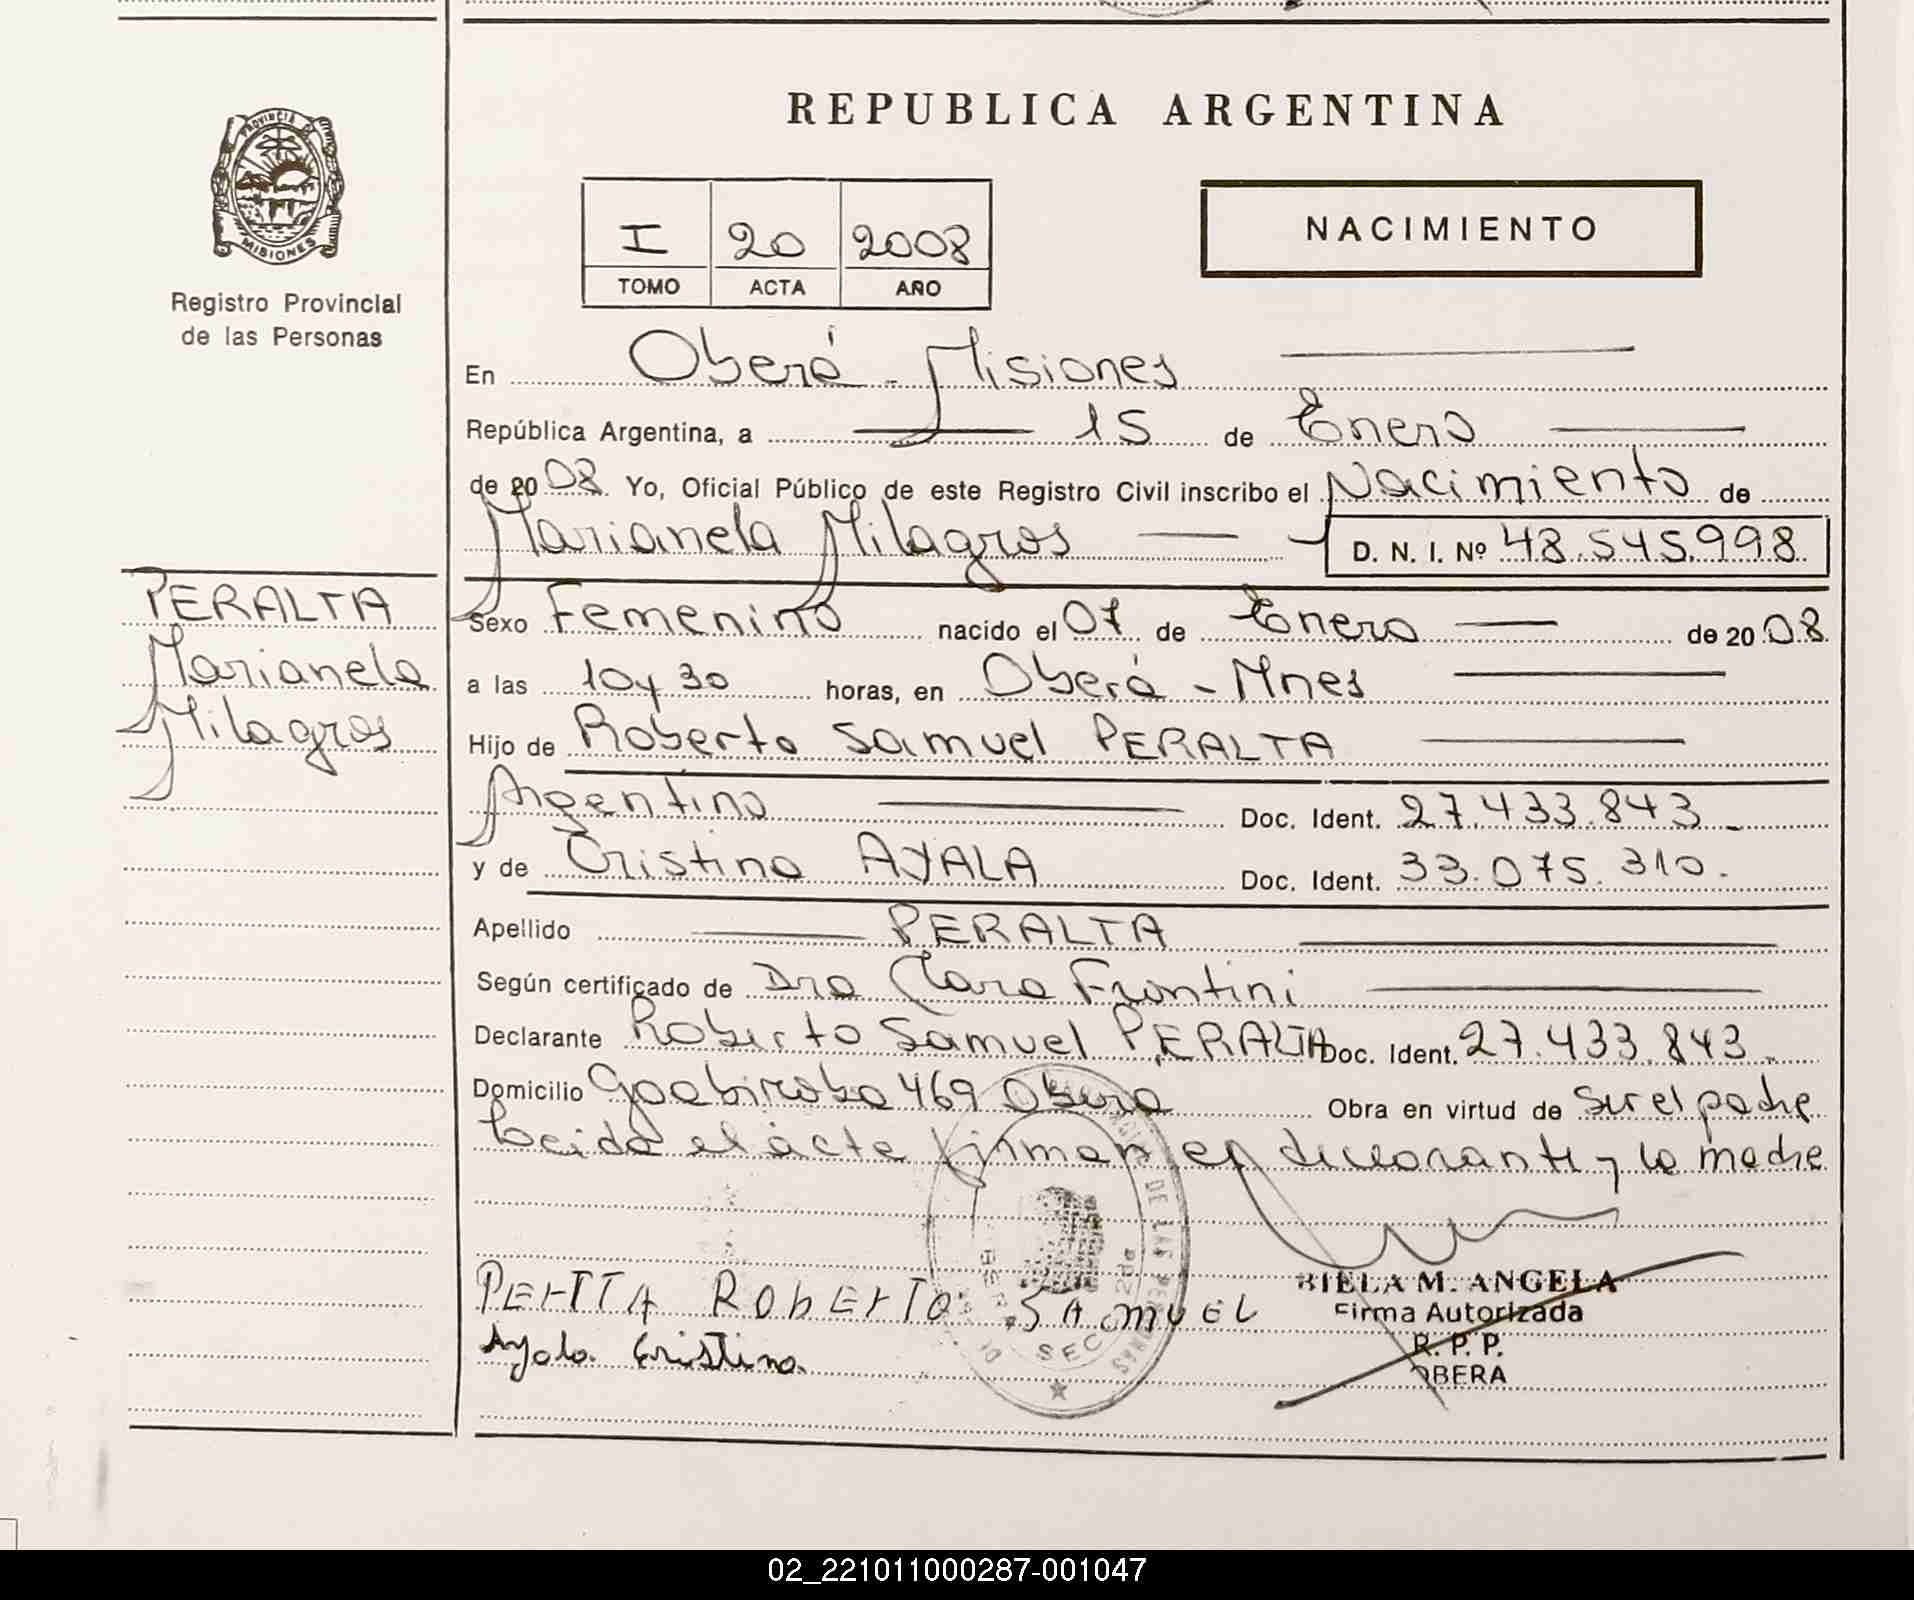 REPUBLICA ARGENTINA
PROVINCIA DE
MISIONES
Registro Provincial
de las Personas
I 20 2008
TOMO ACTA AÑO
NACIMIENTO
En Oberá - Misiones
República Argentina, a 15 de Enero
de 2008. Yo, Oficial Público de este Registro Civil inscribo el Nacimiento de
Marianela Milagros D. N. I. Nº 48.545.998
PERALTA
Marianela
Milagros
Sexo Femenino nacido el 07 de Enero de 2008
a las 10 y 30 horas, en Oberá - Mnes
Hijo de Roberto Samuel PERALTA
Argentino Doc. Ident. 27.433.843
y de Cristina AYALA Doc. Ident. 33.075.310.
Apellido PERALTA
Según certificado de Dra Clara Frontini
Declarante Roberto Samuel PERALTA Doc. Ident. 27.433.843
Domicilio 469 Obera Obra en virtud de ser el padre
el acta firman el declarante y la madre
ROBERTO SAMUEL
Ayala Cristina
SECC
BIELA M. ANGELA
Firma Autorizada
R. P. P.
OBERA
02_221011000287-001047